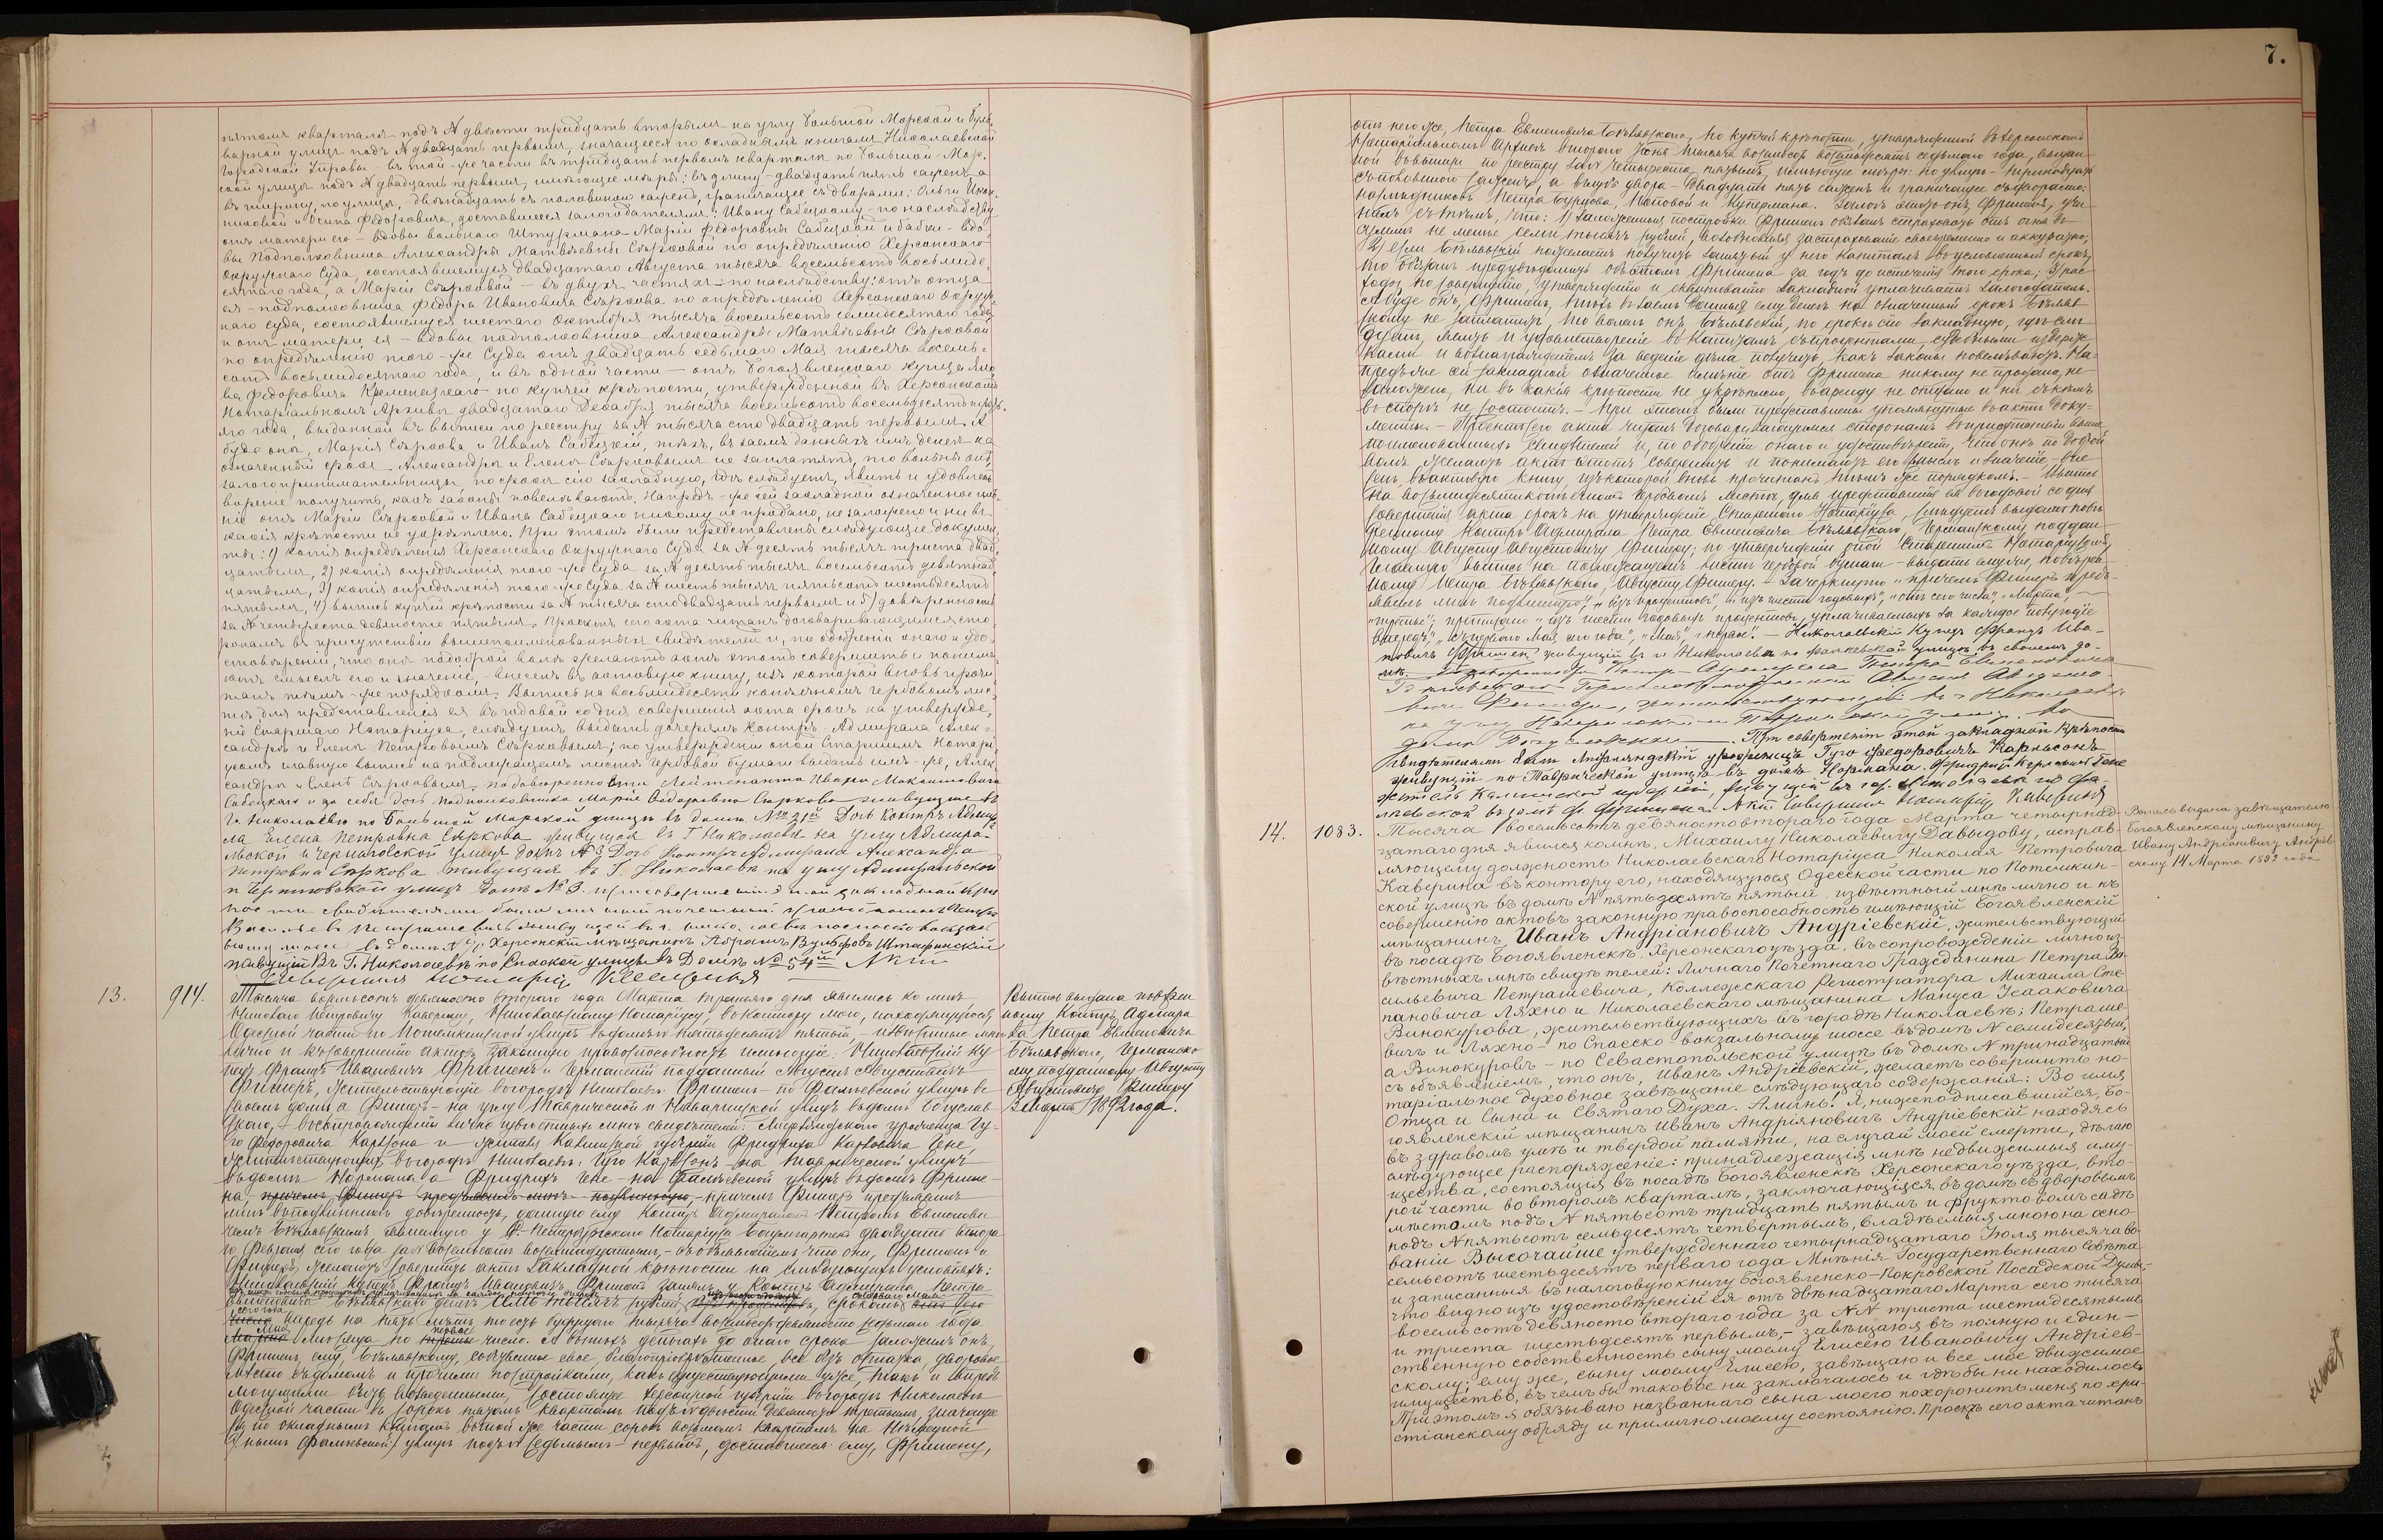 пятомъ кварталѣ подъ № двѣсти тридцать вторымъ на углу Большой Морской и Буль-
варной улицъ подъ № двадцать первымъ, значащееся по окладнымъ книгамъ Николаевской
Городской Управы въ той-же части въ тридцать первомъ кварталѣ по Большой-Мор-
ской улицѣ подъ № двадцать первымъ, имѣющее мѣры: въ длину - двадцать пять сажень, а
въ ширину, по улицѣ, - двѣнадцать съ половиною сажень, граничащее съ дворами: Ольги
и Осипа Федоровича, доставшееся залогодателямъ: Ивану Сабецкому - по наслѣдству
отъ матери его - вдовы вольнаго Штурмана Маріи Федоровны Сабецкой и бабки - вдо-
вы Подполковника Александры Матвѣевны Сърковой по опредѣленію Херсонскаго
Окружнаго Суда, состоявшемуся двадцатаго Августа тысяча восемьсотъ восьмиде-
сятаго года, а Маріи Сърковой - въ двухъ частяхъ - по наслѣдству: отъ отца
ея - подполковника Федора Ивановича Съркова по опредѣленію Херсонскаго Окруж-
наго Суда, состоявшемуся шестаго Октября тысяча восемьсотъ семидесятаго года
и отъ матери, ея - вдовы подполковника Александры Матвѣевны Сърковой
по опредѣленію того-же Суда отъ двадцать седьмаго Мая тысяча восемь-
сотъ восьмидесятаго года, и въ одной части - отъ Богоявленскаго купца
Федоровича Кременецкаго по купчей крѣпости, утвержденной въ Херсонскомъ
Нотаріальномъ Архивѣ двадцатаго Декабря тысяча восемьсотъ восемьдесятъ
года, выданной въ выписи по реестру за № тысяча сто двадцать первымъ. А
буде они, Марія Съркова и Иванъ Сабецкій, тѣхъ, въ заемъ данныхъ имъ денегъ на
означенный срокъ Александрѣ и Еленѣ Сърковымъ не заплатятъ, то вольны онѣ,
залогопринимательницы, по срокѣ сію закладную, гдѣ слѣдуетъ, явить и удовлет-
вореніе получить, какъ законы повелѣваютъ. Напредь-же сей закладной означенное имѣ-
ніе отъ Маріи Сърковой и Ивана Сабецкаго никому не продано, не заложено и ни въ
какія крѣпости не укрѣплено. При этомъ были представлены слѣдующіе докумен-
ты: 1) копія опредѣленія Херсонскаго Окружнаго Суда за № десять тысячъ триста двад-
цатымъ, 2) копія опредѣленія того-же Суда за № десять тысячъ восемьсотъ девятнад-
цатымъ, 3) копія опредѣленія того-же Суда за № шесть тысячъ пятьсотъ шестьдесятъ
пятымъ, 4) выпись купчей крѣпости за № тысяча сто двадцать первымъ и 5) довѣренность
за № четыреста девяносто пятымъ. Проектъ сего акта читанъ договаривающимся сто-
ронамъ въ присутствіи вышепоименованныхъ свидѣтелей и, по одобреніи онаго и удо-
стовѣреніи, что они по доброй волѣ желаютъ актъ этотъ совершить и понима-
ютъ смыслъ его и значеніе, - внесенъ въ актовую книгу, изъ которой вновь прочи-
танъ тѣмъ-же порядкомъ. Выпись на восьмидесяти копѣечномъ гербовомъ лис-
тѣ для представленія ея въ годовой со дня совершенія акта срокъ на утвержде-
ніе Старшаго Нотаріуса, слѣдуетъ выдать дочерямъ Контръ-Адмирала Алек-
сандрѣ и Еленѣ Петровымъ Сърковымъ; по утвержденіи оной Старшимъ Нотарі-
усомъ главную выпись на надлежащемъ листѣ гербовой бумаги выдать имъ-же, Алек-
сандрѣ и Еленѣ Сърковымъ. по довѣренности Лейтенанта Ивана Максимовича
Сабецкаго и за себя дочь подполковника Марія Федоровна Съркова живущая въ
г. Николаевѣ по Большой Морской улицѣ въ домѣ № 21й Дочь Контръ Адмира-
ла Елена Петровна Съркова живущая въ Г Николаевѣ на углу Адмира-
льской и Черниговской улицъ домъ № 3 Дочь Контръ Адмирала Александра
Петровна Съркова живущая въ Г. Николаевѣ на углу Адмиральской
и Черниговской улицъ домъ № 3. при совершеніи этой закладной крѣ-
пости свидѣтелями были личный почетный гражданинъ Петръ
Васильевъ Петрашевичъ живущій въ г. Николаевѣ по Спасско вокзаль-
ному шоссе въ домѣ № Херсонскій мѣщанинъ Абрамъ Вульфовъ Штафинскій
живущій Въ Г. Николаевѣ по Спасской улицѣ въ Домѣ № 54й Актъ
Совершилъ Нотаріусъ Каверинъ
13. 914. Тысяча восемьсотъ девяносто втораго года Марта третьяго дня явились ко мнѣ,
Николаю Петровичу Каверину, Николаевскому Нотаріусу, въ контору мою, находящуюся
Одесской части по Потемкинской улицѣ въ домѣ № пятьдесятъ пятый, - извѣстные мнѣ
лично и къ совершенію актовъ законную правоспособность имѣющіе: Николаевскій Ку-
пецъ Францъ Ивановичъ Фришенъ и Германскій подданный Августъ Августовичъ
Фишеръ, жительствующіе въ городѣ Николаевѣ: Фришенъ - по Фалѣевской улицѣ въ
своемъ домѣ, а Фишеръ - на углу Таврической и Наваринской улицъ въ домѣ Богуслав-
скаго, - въ сопровожденіи лично извѣстныхъ мнѣ свидѣтелей: Лифляндскаго уроженца Гу-
го Федоровича Карлсона и жителя Калишской губерніи Фридриха Карловича Гене,
жительствующихъ въ городѣ Николаевѣ: Гуго Карлсонъ - на Таврической улицѣ
въ домѣ Нормана, а Фридрихъ Гене - на Фалѣевской улицѣ въ домѣ Фрише-
на, причемъ Фишеръ предъявилъ мнѣ подлинную, - причемъ Фишеръ предъявилъ
мнѣ въ подлинникѣ довѣренность, данную ему Контръ Адмираломъ Петромъ Евгеніеви-
чемъ Бѣлявскимъ явленную у С.-Петербургскаго Нотаріуса двадцать втора-
го Февраля сего года за № восемьсотъ восемнадцатымъ, - съ объявленіемъ что они, Фришенъ и
Фишеръ, желаютъ совершить актъ закладной крѣпости на слѣдующихъ условіяхъ:
Николаевскій Купецъ Францъ Ивановичъ Фришенъ занялъ у Контръ Адмирала Петра
изъ шести годовыхъ процентовъ, уплачиваемыхъ за каждое полугодіе впередъ съ перваго Мая
Бѣлявскаго денегъ семь тысячъ рублей, безъ процентовъ, срокомъ
сего года
впредь на пять лѣтъ то есть будущаго тысяча восемьсотъ девяносто седьмаго года
Мая первое
Марта мѣсяца по третье число. А въ тѣхъ деньгахъ до онаго срока заложилъ онъ,
Фришенъ, ему, Бѣлявскому, собственное свое, благопріобрѣтенное, все безъ остатка, дворовое
мѣсто съ домомъ и прочими постройками, какъ существующими уже, такъ и впредь
могущими быть возведенными, состоящее Херсонской губерніи въ городѣ Николаевѣ
Одесской части въ сорокъ пятомъ кварталѣ подъ № двѣсти девяносто третьимъ, значаще-
еся по окладнымъ книгамъ въ той же части сорокъ восьмомъ кварталѣ на
(нынѣ Фалѣевской) улицѣ подъ № седьмымъ-первымъ, доставшееся ему, Фришену,
Выпись выдана повѣрен-
ному Контръ Адмира-
ла Петра Евгеніевича
Бѣлявскаго, Германско-
му подданному Августу
Августовичу Фишеру
3 Марта 1892 года.
7.
отъ него же, Петра Евгеніевича Бѣлявскаго, по купчей крѣпости, утвержденной въ Херсонскомъ
Нотаріальномъ Архивѣ втораго Іюня тысяча восемьсотъ восемьдесятъ седьмаго года, выдан-
ной въ выписи по реестру за № четыреста пятымъ, имѣющее мѣры: по улицѣ - тринадцать
съ половиною сажень, а вглубь двора - двадцать пять сажень и граничащее съ дворами:
наслѣдниковъ Петра Бурцова, Поповой и Купермана. Залогъ этотъ онъ, Фришенъ, учи-
нилъ съ тѣмъ, что: 1) заложенныя постройки Фришенъ обязанъ страховать отъ огня въ
суммѣ не менѣе семи тысячъ рублей, возобновляя застрахованіе своевременно и аккуратно;
2) если Бѣлявскій пожелаетъ получить занятый у него капиталъ въ условленный срокъ,
то обязанъ предувѣдомить объ этомъ Фришена за годъ до истеченія того срока; 3) рас-
ходы по совершенію, утвержденію и закладной уплачиваетъ залогодатель.
А буде онъ, Фришенъ, тѣхъ въ заемъ данныхъ ему денегъ на означенный срокъ Бѣляв-
скому не заплатитъ, то воленъ онъ, Бѣлявскій, по срокѣ сію закладную, гдѣ слѣ-
дуетъ, явить и удовлетвореніе въ капиталѣ съ процентами, судебными издерж-
ками и вознагражденіемъ за веденіе дѣла получить, какъ законы повелѣваютъ. На-
предь же сей закладной означенное имѣніе отъ Фришена никому не продано, не
заложено, ни въ какія крѣпости не укрѣплено, въ аренду не отдано и ни съ кѣмъ
въ спорѣ не состоитъ. - При этомъ были представлены упомянутые въ актѣ доку-
менты. - Проектъ сего акта читанъ договаривающимся сторонамъ въ присутствіи выше-
поименованныхъ свидѣтелей и, по одобреніи онаго и удостовѣреніи, что они по доброй
волѣ желаютъ актъ этотъ совершить и понимаютъ его смыслъ и значеніе - вне-
сенъ въ актовую книгу, изъ которой вновь прочитанъ тѣмъ же порядкомъ. - Выпись
на восьмидесяти копѣечномъ гербовомъ листѣ, для представленія ея въ годовой со дня
совершенія акта срокъ на утвержденіе Старшаго Нотаріуса, слѣдуетъ выдать повѣ-
ренному Контръ Адмирала Петра Евгеніевича Бѣлявскаго, Германскому поддан-
ному Августу Августовичу Фишеру; по утвержденіи оной Старшимъ Нотаріусомъ,
главную выпись на надлежащемъ листѣ гербовой бумаги - выдать ему же, повѣрен-
ному Петра Бѣлявскаго, Августу Фишеру. - Зачеркнуто "причемъ Фишеръ предъ-
явилъ мнѣ подлинную", "безъ процентовъ", "отъ сего числа", "Марта",
"третье"; приписано "изъ шести годовыхъ процентовъ, уплачиваемыхъ за каждое полугодіе
впередъ", "съ перваго Мая сего года", "Мая", "первое". - Николаевскій Купецъ Францъ Ива-
новичъ Фришенъ живущій въ г. Николаевѣ по Фалѣевской улицѣ въ своемъ до-
мѣ. По довѣренности Контръ-Адмирала Петра Евгеніевича
Бѣлявскаго Германскій подданный Августъ Августо-
вичъ Фишеръ, жительствующій въ г. Николаевѣ
на углу Наваринской и Таврической улицъ въ
домѣ Богуславскаго. При совершеніи этой закладной крѣпости
свидѣтелями были Лифляндскій уроженецъ Гуго Федоровичъ Карльсонъ
живущій по Таврической улицѣ въ домѣ Нормана. Фридрихъ Карловичъ Гене
житель Калишской губерніи, живущій въ гор. Николаевѣ по Фа-
лѣевской въ домѣ Ф. Фришена. Актъ Совершилъ Нотаріусъ Каверинъ
14. 1083. Тысяча восемьсотъ девяносто втораго года Марта четырнад-
цатаго дня явился ко мнѣ, Михаилу Николаевичу Давыдову, исправ-
ляющему должность Николаевскаго Нотаріуса Николая Петровича
Каверина въ контору его, находящуюся Одесской части по Потемкин-
ской улицѣ въ домѣ № пятьдесятъ пятый, извѣстный мнѣ лично и къ
совершенію актовъ законную правоспособность имѣющій Богоявленскій
мѣщанинъ Иванъ Андріановичъ Андріевскій, жительствующій
въ посадѣ Богоявленскѣ, Херсонскаго уѣзда, въ сопровожденіи лично из-
вѣстныхъ мнѣ свидѣтелей: Личнаго Почетнаго Гражданина Петра Ва-
сильевича Петрашевича, Коллежскаго Регистратора Михаила Сте-
пановича Ляхно и Николаевскаго мѣщанина Мануса Исааковича
Винокурова, жительствующихъ въ городѣ Николаевѣ: Петраше-
вичъ и Ляхно - по Спасско-вокзальному шоссе въ домѣ № семидесятый,
а Винокуровъ - по Севастопольской улицѣ въ домѣ № тринадцатый
съ объявленіемъ, что онъ, Иванъ Андріевскій, желаетъ совершить но-
таріальное духовное завѣщаніе слѣдующаго содержанія: Во имя
Отца и Сына и Святаго Духа. Аминь! Я, нижеподписавшійся, Бо-
гоявленскій мѣщанинъ Иванъ Андріяновичъ Андріевскій находясь
въ здравомъ умѣ и твердой памяти, на случай моей смерти, дѣлаю
слѣдующее распоряженіе: принадлежащія мнѣ недвижимыя иму-
щества, состоящія въ посадѣ Богоявленскѣ Херсонскаго уѣзда, вто-
рой части во второмъ кварталѣ, заключающіяся въ домѣ съ дворовымъ
мѣстомъ подъ № пятьсотъ тридцать пятымъ и фруктовомъ садѣ
подъ № пятьсотъ семьдесятъ четвертымъ, владѣемыя мною на осно-
ваніи Высочайше утвержденнаго четырнадцатаго Іюля тысяча во-
семьсотъ шестьдесятъ перваго года Мнѣнія Государственнаго Совѣта
и записанныя въ налоговую книгу Богоявленско-Покровской Посадской Думы,
что видно изъ удостовѣреній ея отъ двѣнадцатаго Марта сего тысяча
восемьсотъ девяносто втораго года за №№ триста шестидесятымъ
и триста шестьдесятъ первымъ, - завѣщаю въ полную и един-
ственную собственность сыну моему Елисею Ивановичу Андріев-
скому; ему же, сыну моему Елисею, завѣщаю и все мое движимое
имущество, въ чемъ бы таковое ни заключалось и гдѣ бы ни находилось
При этомъ я обязываю названнаго сына моего похоронить меня по хри-
стіанскому обряду и прилично моему состоянію. Проектъ сего акта читанъ
Выпись выдана завѣщателю
Богоявленскому мѣщанину
Ивану Андріановичу Андріев-
скому 14 Марта 1892 года